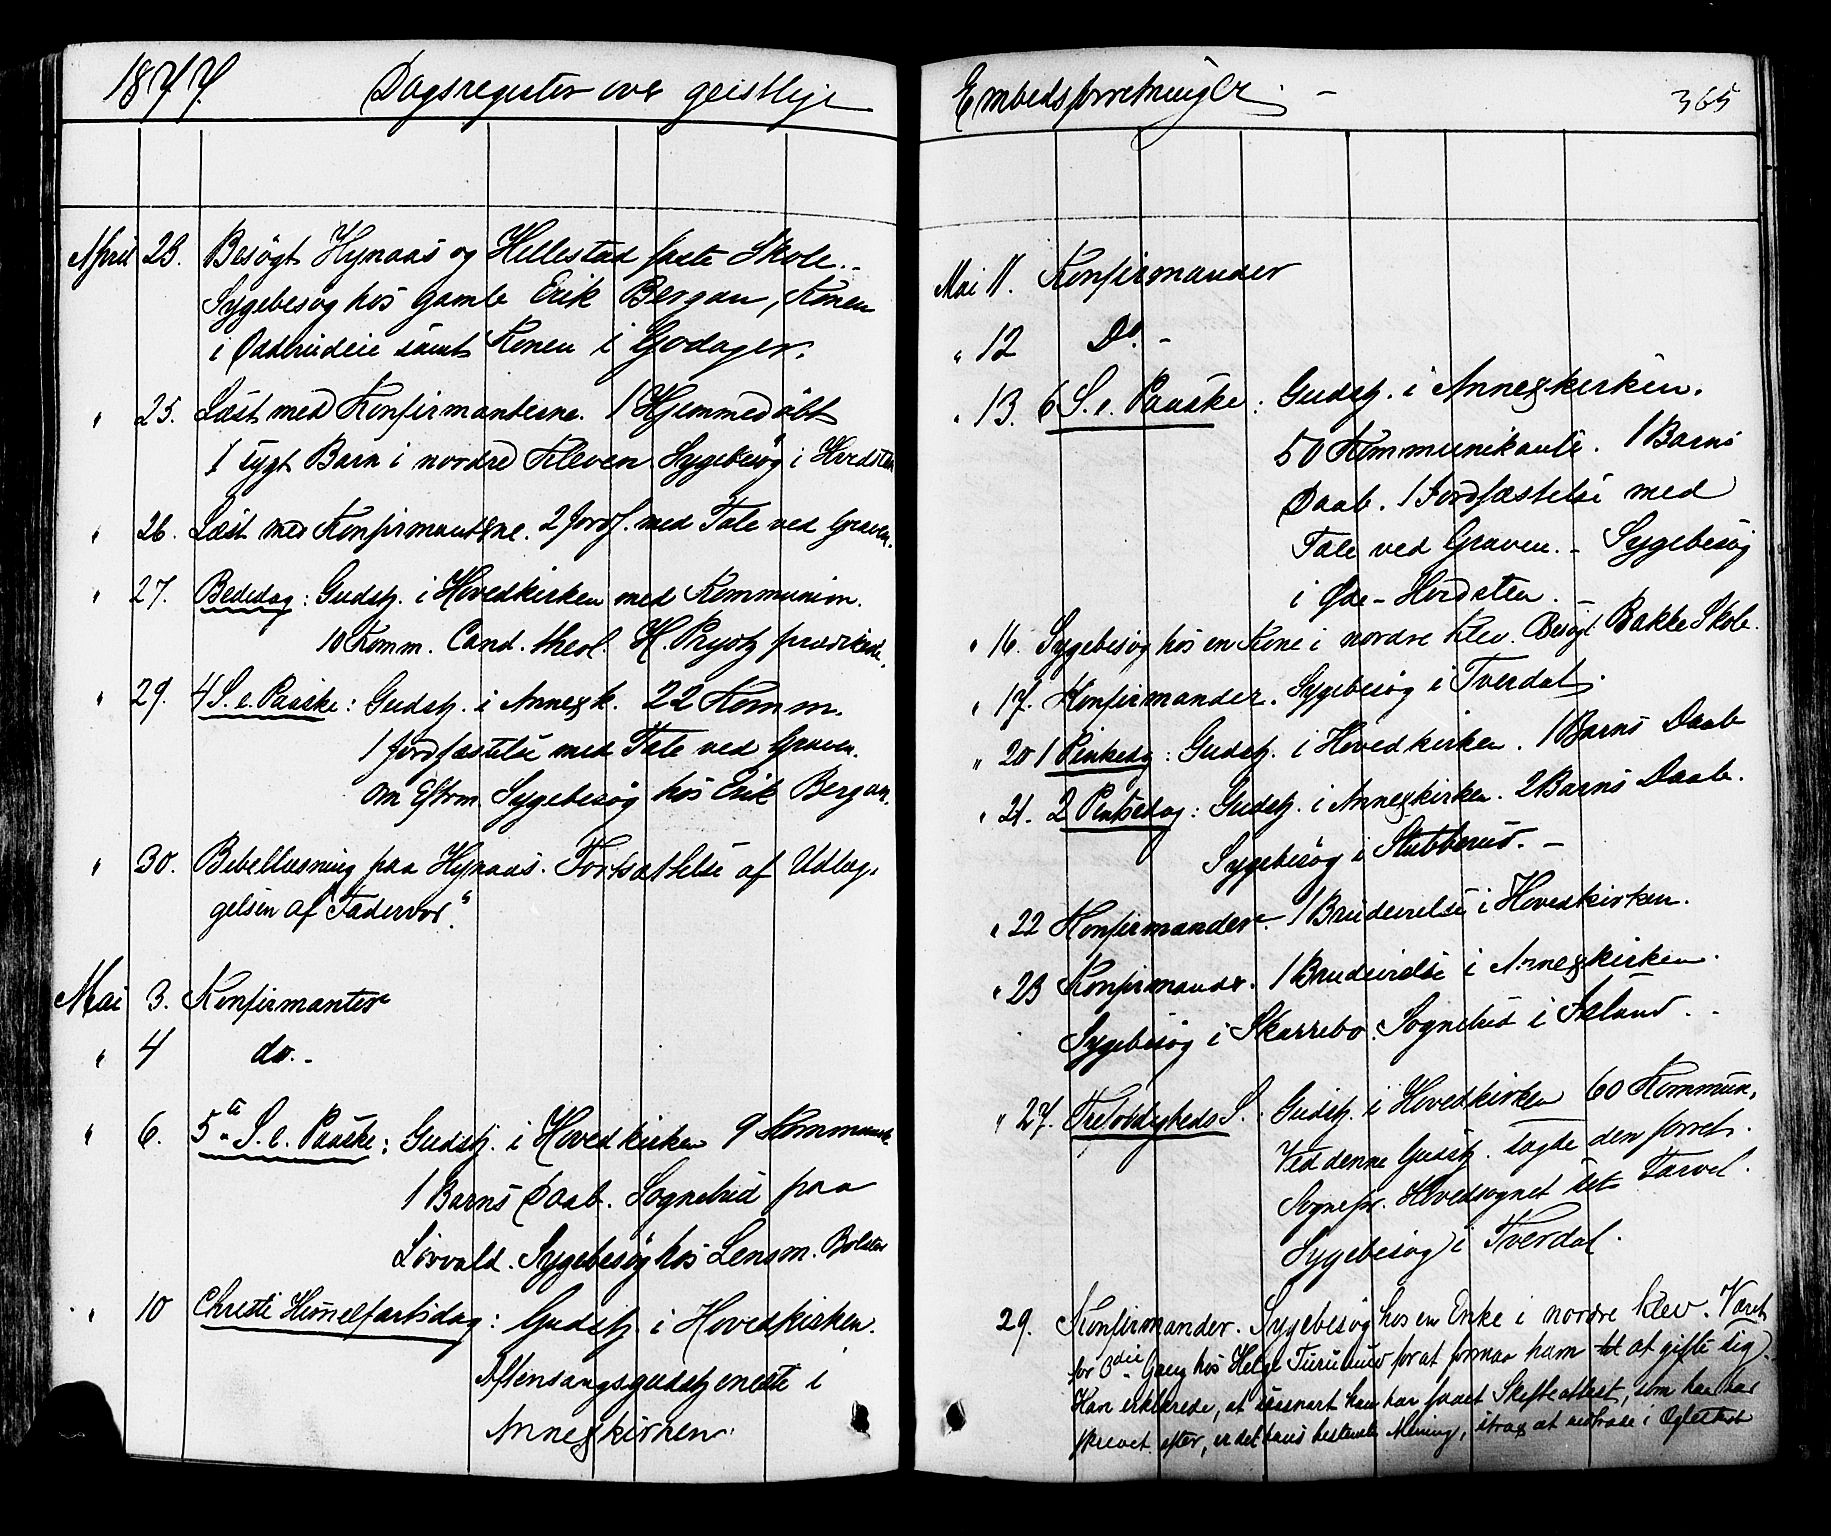 1877. Dagsregister over geistlige
April 23. Besøgt Hynaas og Hellestad faste Skole.
Sygebesøg hos Gamle Erik Bergan, Konen
i samt Konen i Godager.
" 25. Læst med Konfirmanterne. 1 Hjemmedøbt
1 sygt Barn i nordre Kleven. Sygebesøg i Hvedsten
" 26. Læst med Konfirmanterne. 2 Jordf. med Tale ved Graven.
" 27. Bededag: Gudstj. i Hovedkirken med Kommunion.
10 Komm. Cand. theol. H. Prytz prædikede.
" 29. 4 S. e. Paaske: Gudstj. i Annexk. 22 Komm.
1 Jordfæstelse med Tale ved Graven.
Om Efterm. Sygebesøg hos Erik Bergan.
" 30. Bibellæsning paa Hynaas. Fortsættelse af Udlæg-
gelsen af "Fadervor."
Mai 3. Konfirmanter
" 4 do. -
" 6. 5te S. e. Paaske: Gudstj. i Hovedkirken 9 Kommunik.
1 Barns Daab. Sognebud paa
Lövvald. Sygebesøg hos Lensm. Bolstad
" 10 Christi Himmelfartsdag: Gudstj. i Hovedkirken.
Aftensangsgudstjeneste i
Annexkirken.
Embedsforretninger. - 365
Mai 11. Konfirmander
" 12 Do. -
" 13. 6 S. e. Paaske: Gudstj. i Annexkirken.
50 Kommunikante. 1 Barns
Daab. 1 Jordfæstelse med
Tale ved Graven. - Sygebesøg
i Øde-Hvidsten. -
" 16. Sygebesøg hos en Kone i nordre Klev. Besøgt Bakke Skole.
" 17. Konfirmander. Sygebesøg i Tverdal.
" 20 1 Pinkedg: Gudstj. i Hovedkirken. 1 Barns Daab
" 21. 2 Pintsedag: Gudstj. i Annexkirken. 2 Barns Daab.
Sygebesøg i Stubberud. -
" 22 Konfirmander. 1 Brudevielse i Hovedkirken.
" 23 Konfirmander. 1 Brudevielse i Annexkirken.
Sygebesøg i Skarrebo. Sognebud i Asland. -
" 27. Trefoldigheds S.: Gudstj. i Hovedkirken 60 Kommun.
Ved denne Gudstj. sagde den forret.
Sognepr. Hovedsognet sit Farvel.
Sygebesøg i Tverdal.
29. Konfirmander. Sygebesøg hos en Enke i nordre Klev. Været
for 3die Gang hos Helge for at formaa ham til at gifte sig.
Han erklærede, at saasnart han har faaet Skifteattest, som han har
skrevet efter, er det hans bestemte Mening, strax at indtræde i Ægteskab